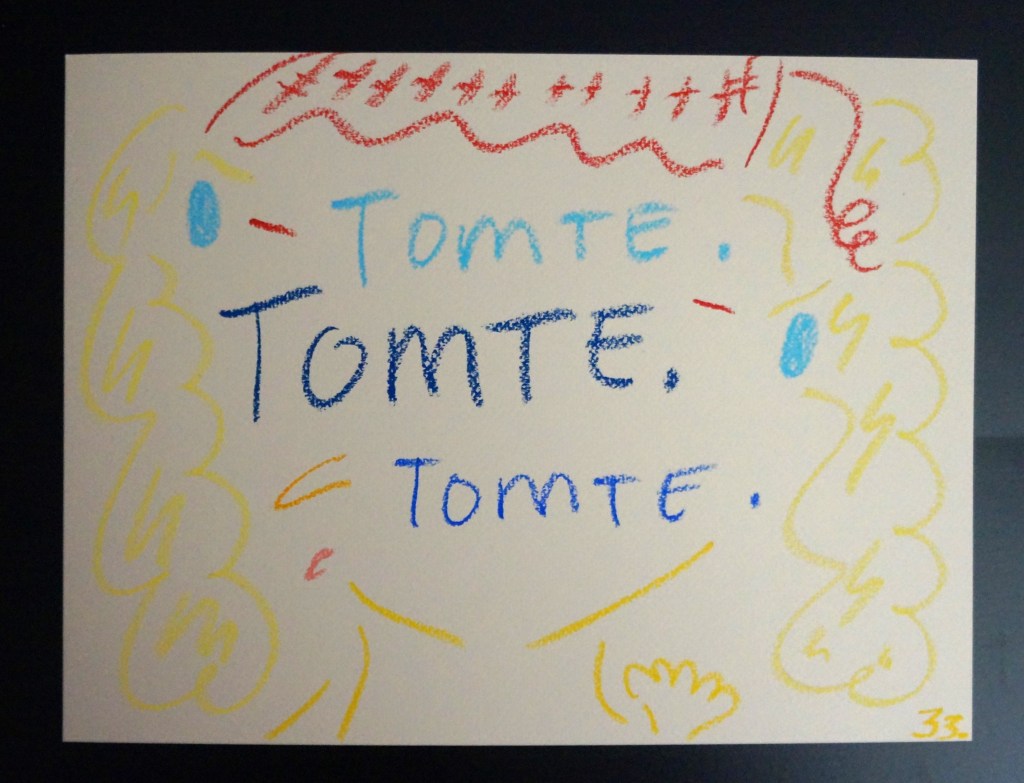 TOMTE.
TOMTE.
TOMTE.
33.